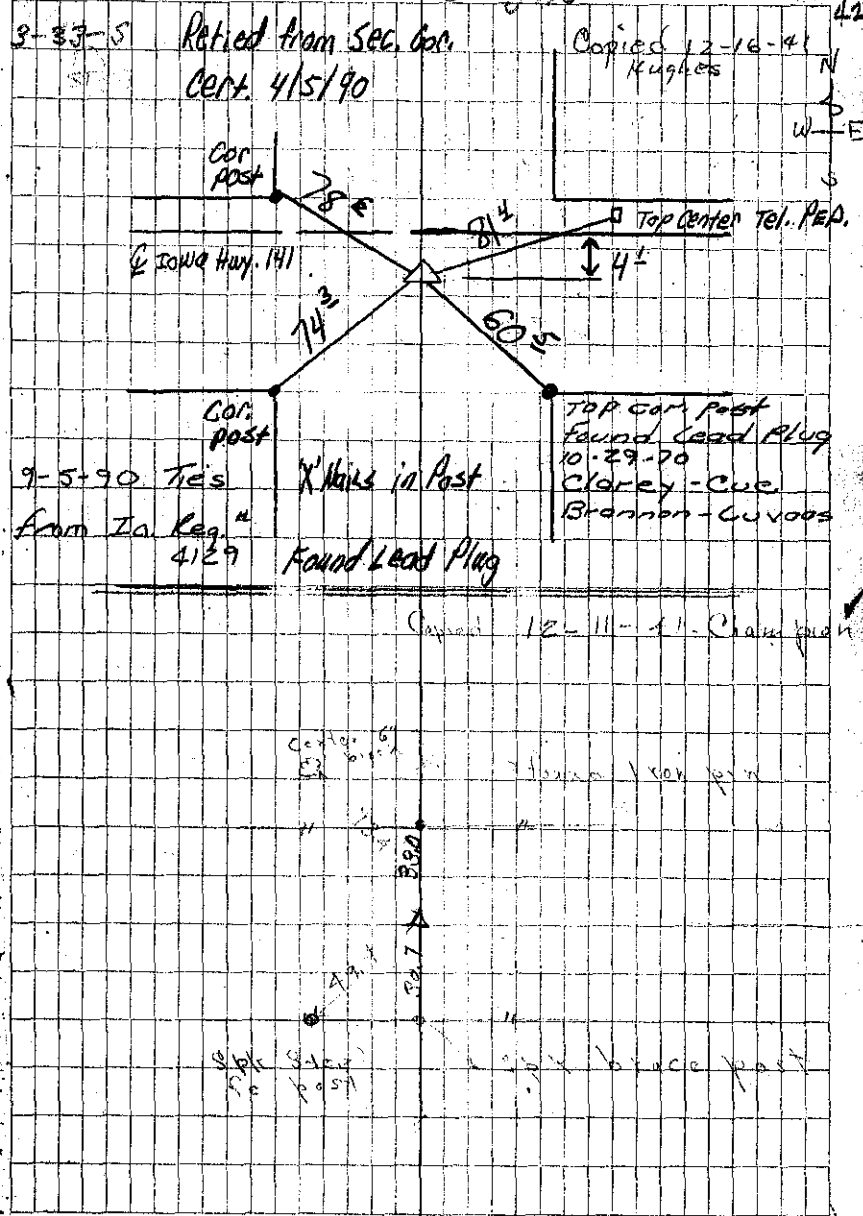 42
3-33-5 Retied from Sec. Cor.
Cert. 4/5/90
Copied 12-16-41
Hughes
N
W E
S
Cor.
post
78
81⁴
Top Center Tel. PED.
℄ Iowa Hwy. 141
4¹
74³
60
Cor.
post
Top Cor. Post
Found Lead Plug
10-29-70
Clarey - Cue
Brannon - Luvaas
9-5-90 Ties
from Ia. Reg. #
4129
"X" Nails in Post
Found Lead Plug
Copied 12-11-41 Champion
Center 6"
Found Iron pin
"
"
33.0
30.7
"
post
brace post